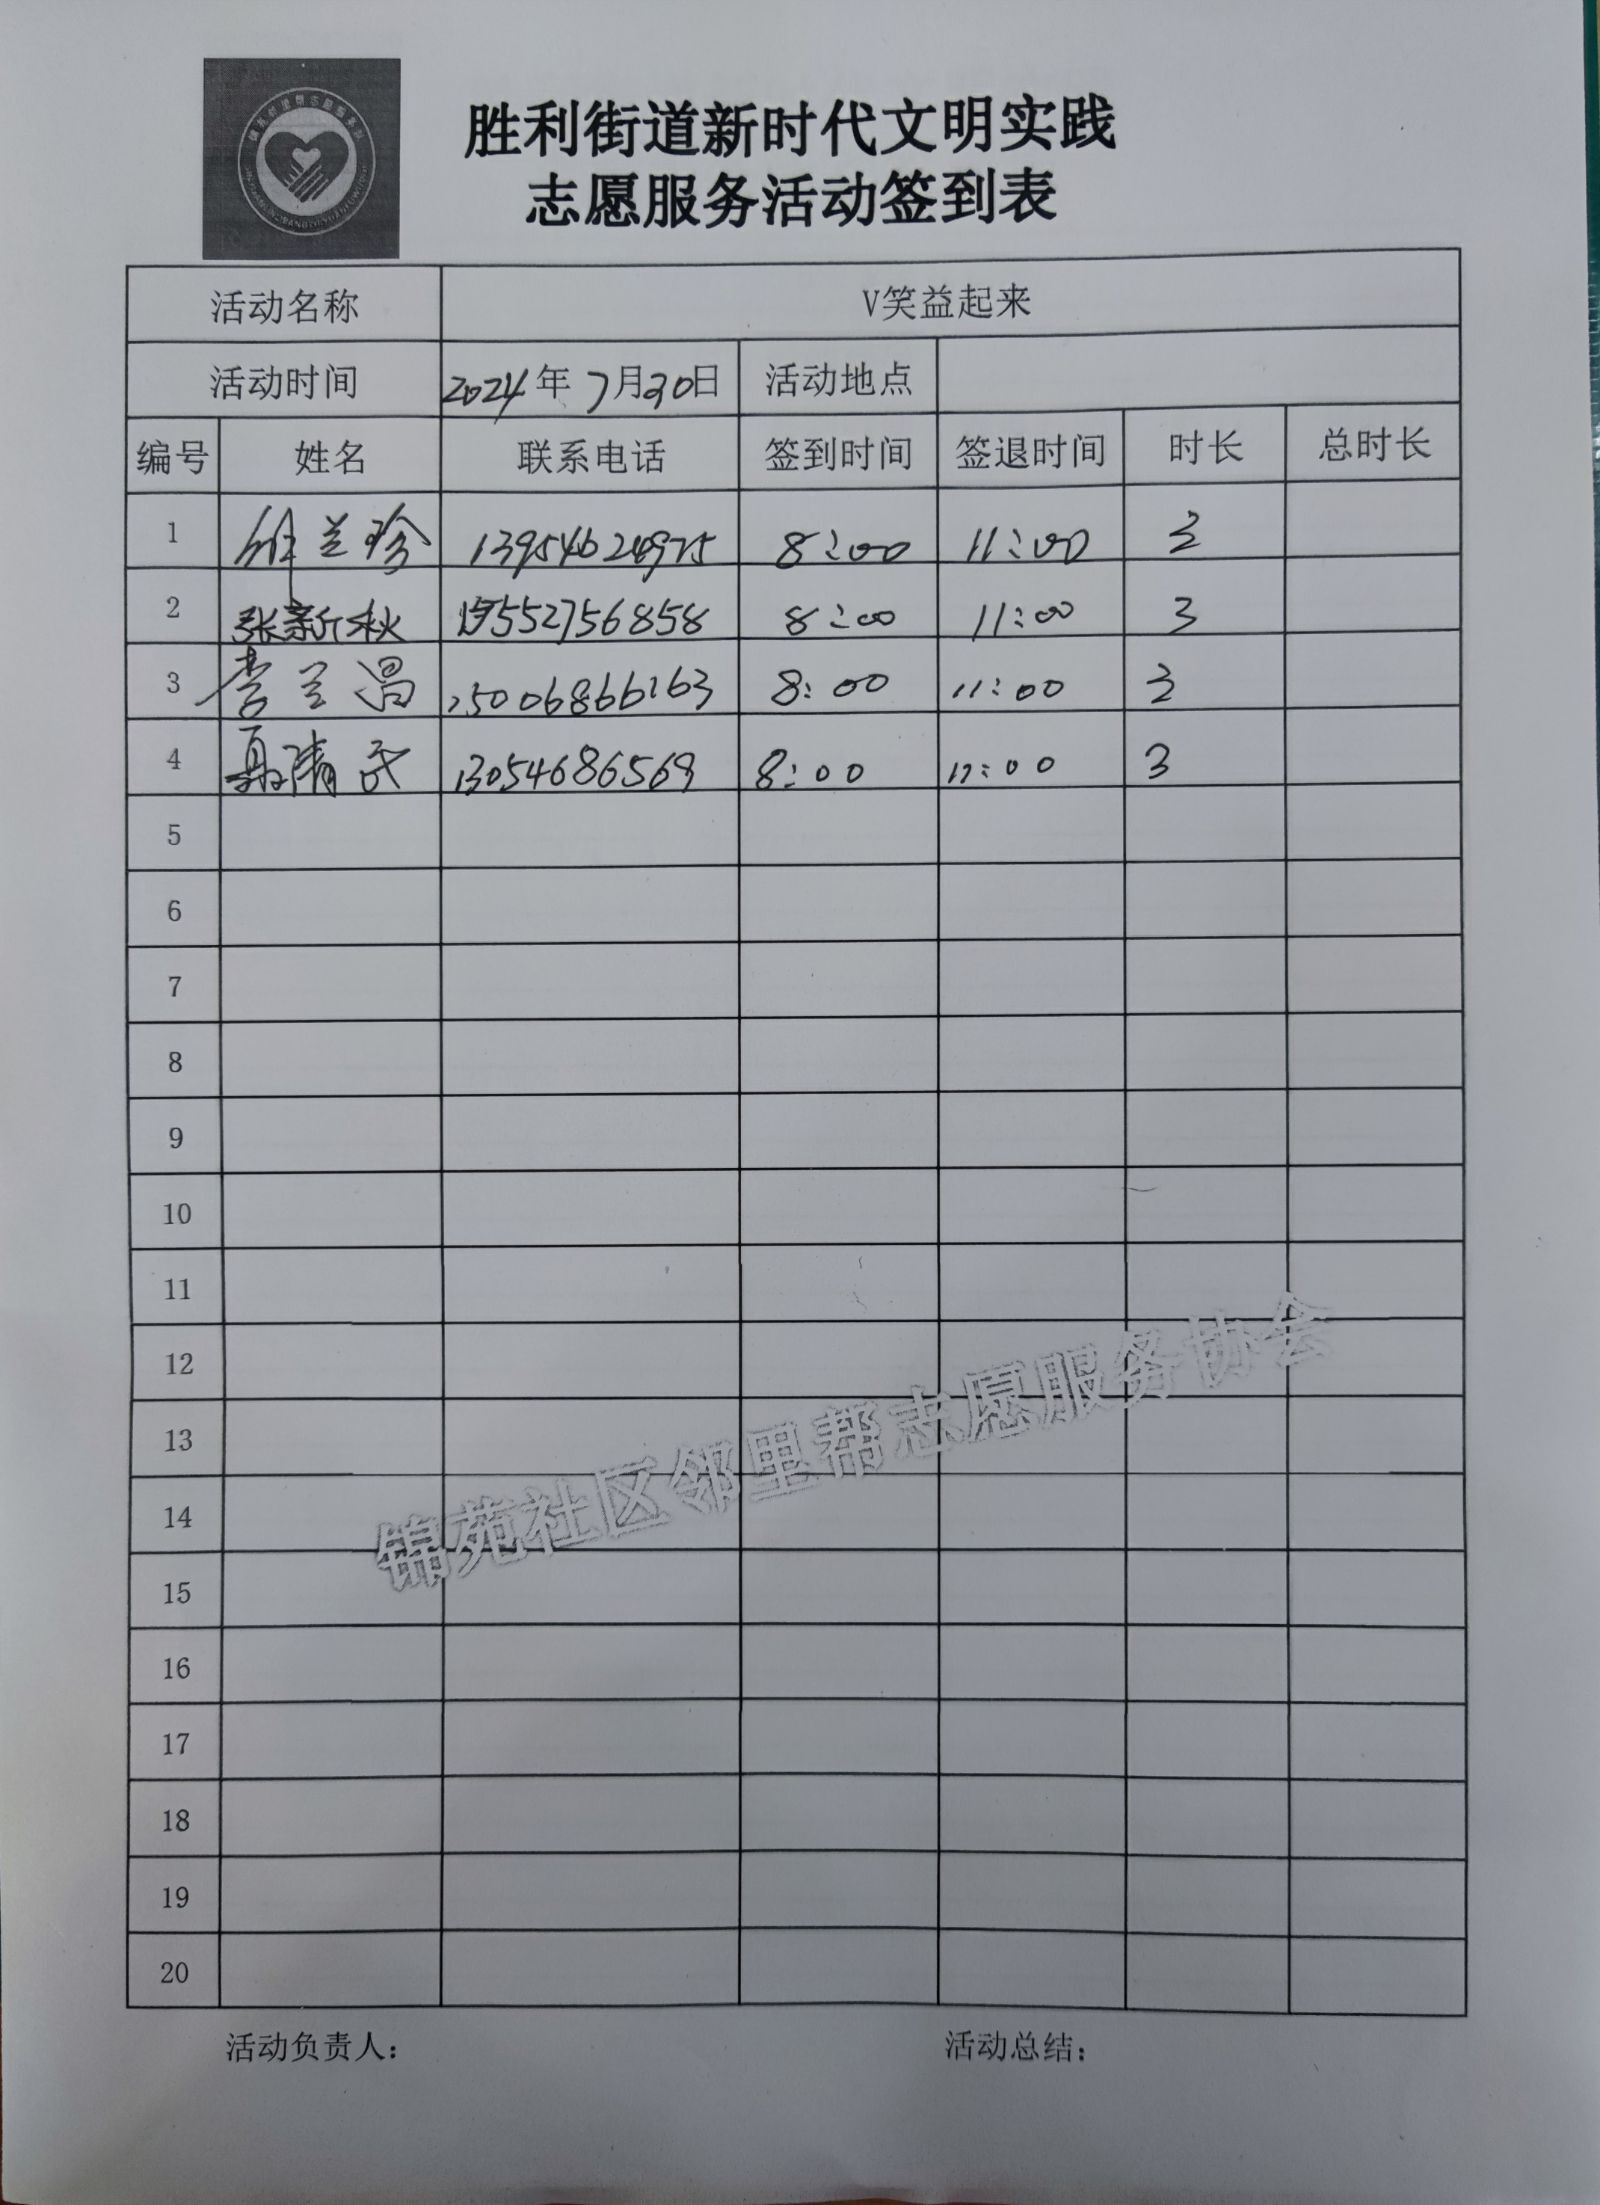 胜利街道新时代文明实践
志愿服务活动签到表
活动名称 V笑益起来
活动时间 2024年7月30日 活动地点
编号 姓名 联系电话 签到时间 签退时间 时长 总时长
1 兰珍 13954624975 8:00 11:00 3
2 张新秋 15552756858 8:00 11:00 3
3 李兰昌 15006866163 8:00 11:00 3
4 聂清 13054686569 8:00 11:00 3
5
6
7
8
9
10
11
12
13
14
15
16
17
18
19
20
锦苑社区邻里帮志愿服务协会
活动负责人: 活动总结: